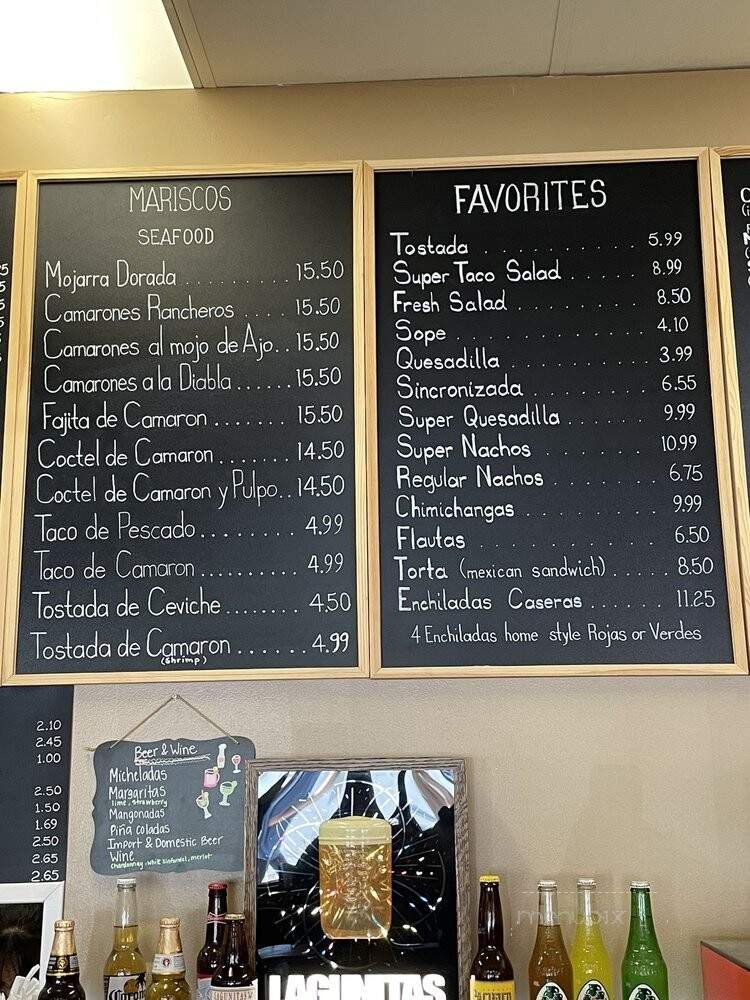 MARISCOS
SEAFOOD
Mojarra Dorada .......... 15.50
Camarones Rancheros ..... 15.50
Camarones al mojo de Ajo.. 15.50
Camarones a la Diabla ...... 15.50
Fajita de Camaron ....... 15.50
Coctel de Camaron ....... 14.50
Coctel de Camaron y Pulpo.. 14.50
Taco de Pescado ......... 4.99
Taco de Camaron .......... 4.99
Tostada de Ceviche ........ 4.50
Tostada de Camaron ...... 4.99
(shrimp)
FAVORITES
Tostada ............ 5.99
Super Taco Salad ...... 8.99
Fresh Salad .......... 8.50
Sope .............. 4.10
Quesadilla ........... 3.99
Sincronizada ......... 6.55
Super Quesadilla ....... 9.99
Super Nachos ......... 10.99
Regular Nachos ........ 6.75
Chimichangas .......... 9.99
Flautas ............. 6.50
Torta (mexican sandwich) ..... 8.50
Enchiladas Caseras ...... 11.25
4 Enchiladas home style Rojas or Verdes
2.10
2.45
1.00
2.50
1.50
1.69
2.50
2.65
2.65
Beer & Wine
Micheladas
Margaritas
lime, strawberry
Mangonadas
Piña coladas
Import & Domestic Beer
Wine
Chardonnay, white zinfandel, merlot
LAGUNITAS
Corona
LAGUNITAS
menupix